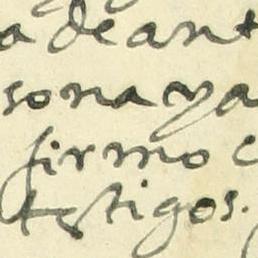 a de ant
sona ya
firmo c
testigos.